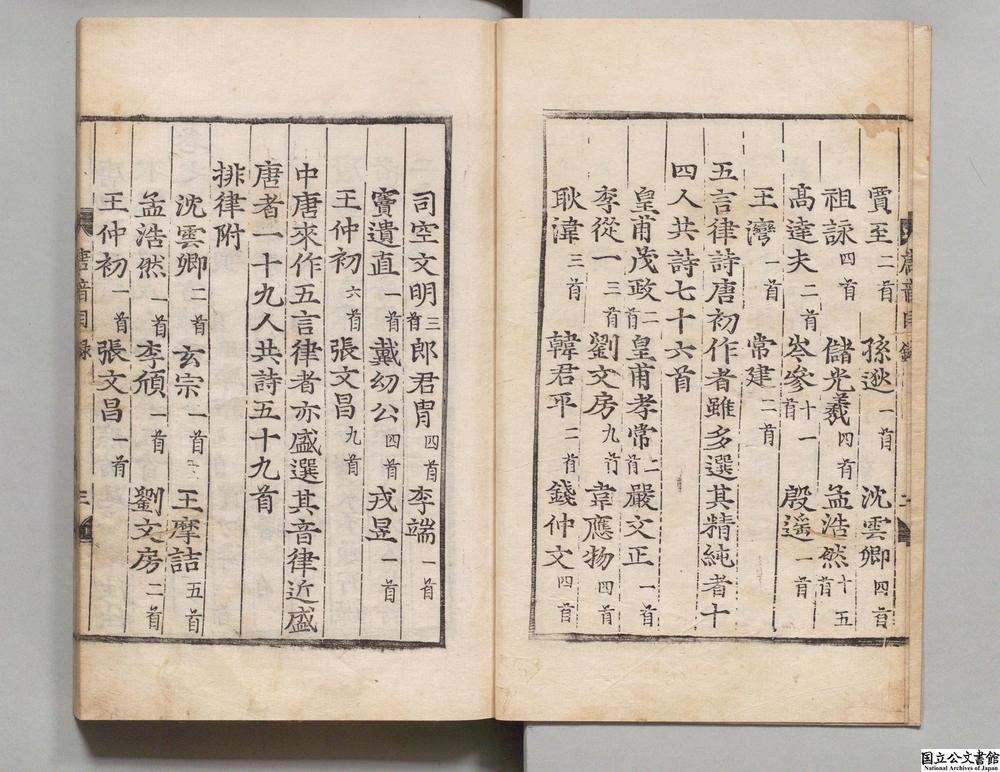 唐音目錄 二
賈至二首 孫逖一首 沈雲卿四首
祖詠四首 儲光羲四首 孟浩然十五首
高達夫二首 岑參十一首 殷遥一首
王灣一首 常建二首
五言律詩唐初作者雖多選其精純者十
四人共詩七十六首
皇甫茂政二首 皇甫孝常二首 嚴文正一首
李從一三首 劉文房九首 韋應物四首
耿湋三首 韓君平二首 錢仲文四首
司空文明三首 郎君冑四首 李端一首
竇遺直一首 戴幼公四首 戎昱一首
王仲初六首 張文昌九首
中唐來作五言律者亦盛選其音律近盛
唐者一十九人共詩五十九首
排律附
沈雲卿二首 玄宗一首 王摩詰五首
孟浩然一首 李頎一首 劉文房二首
王仲初一首 張文昌一首
唐音目錄 三
国立公文書館
National Archives of Japan